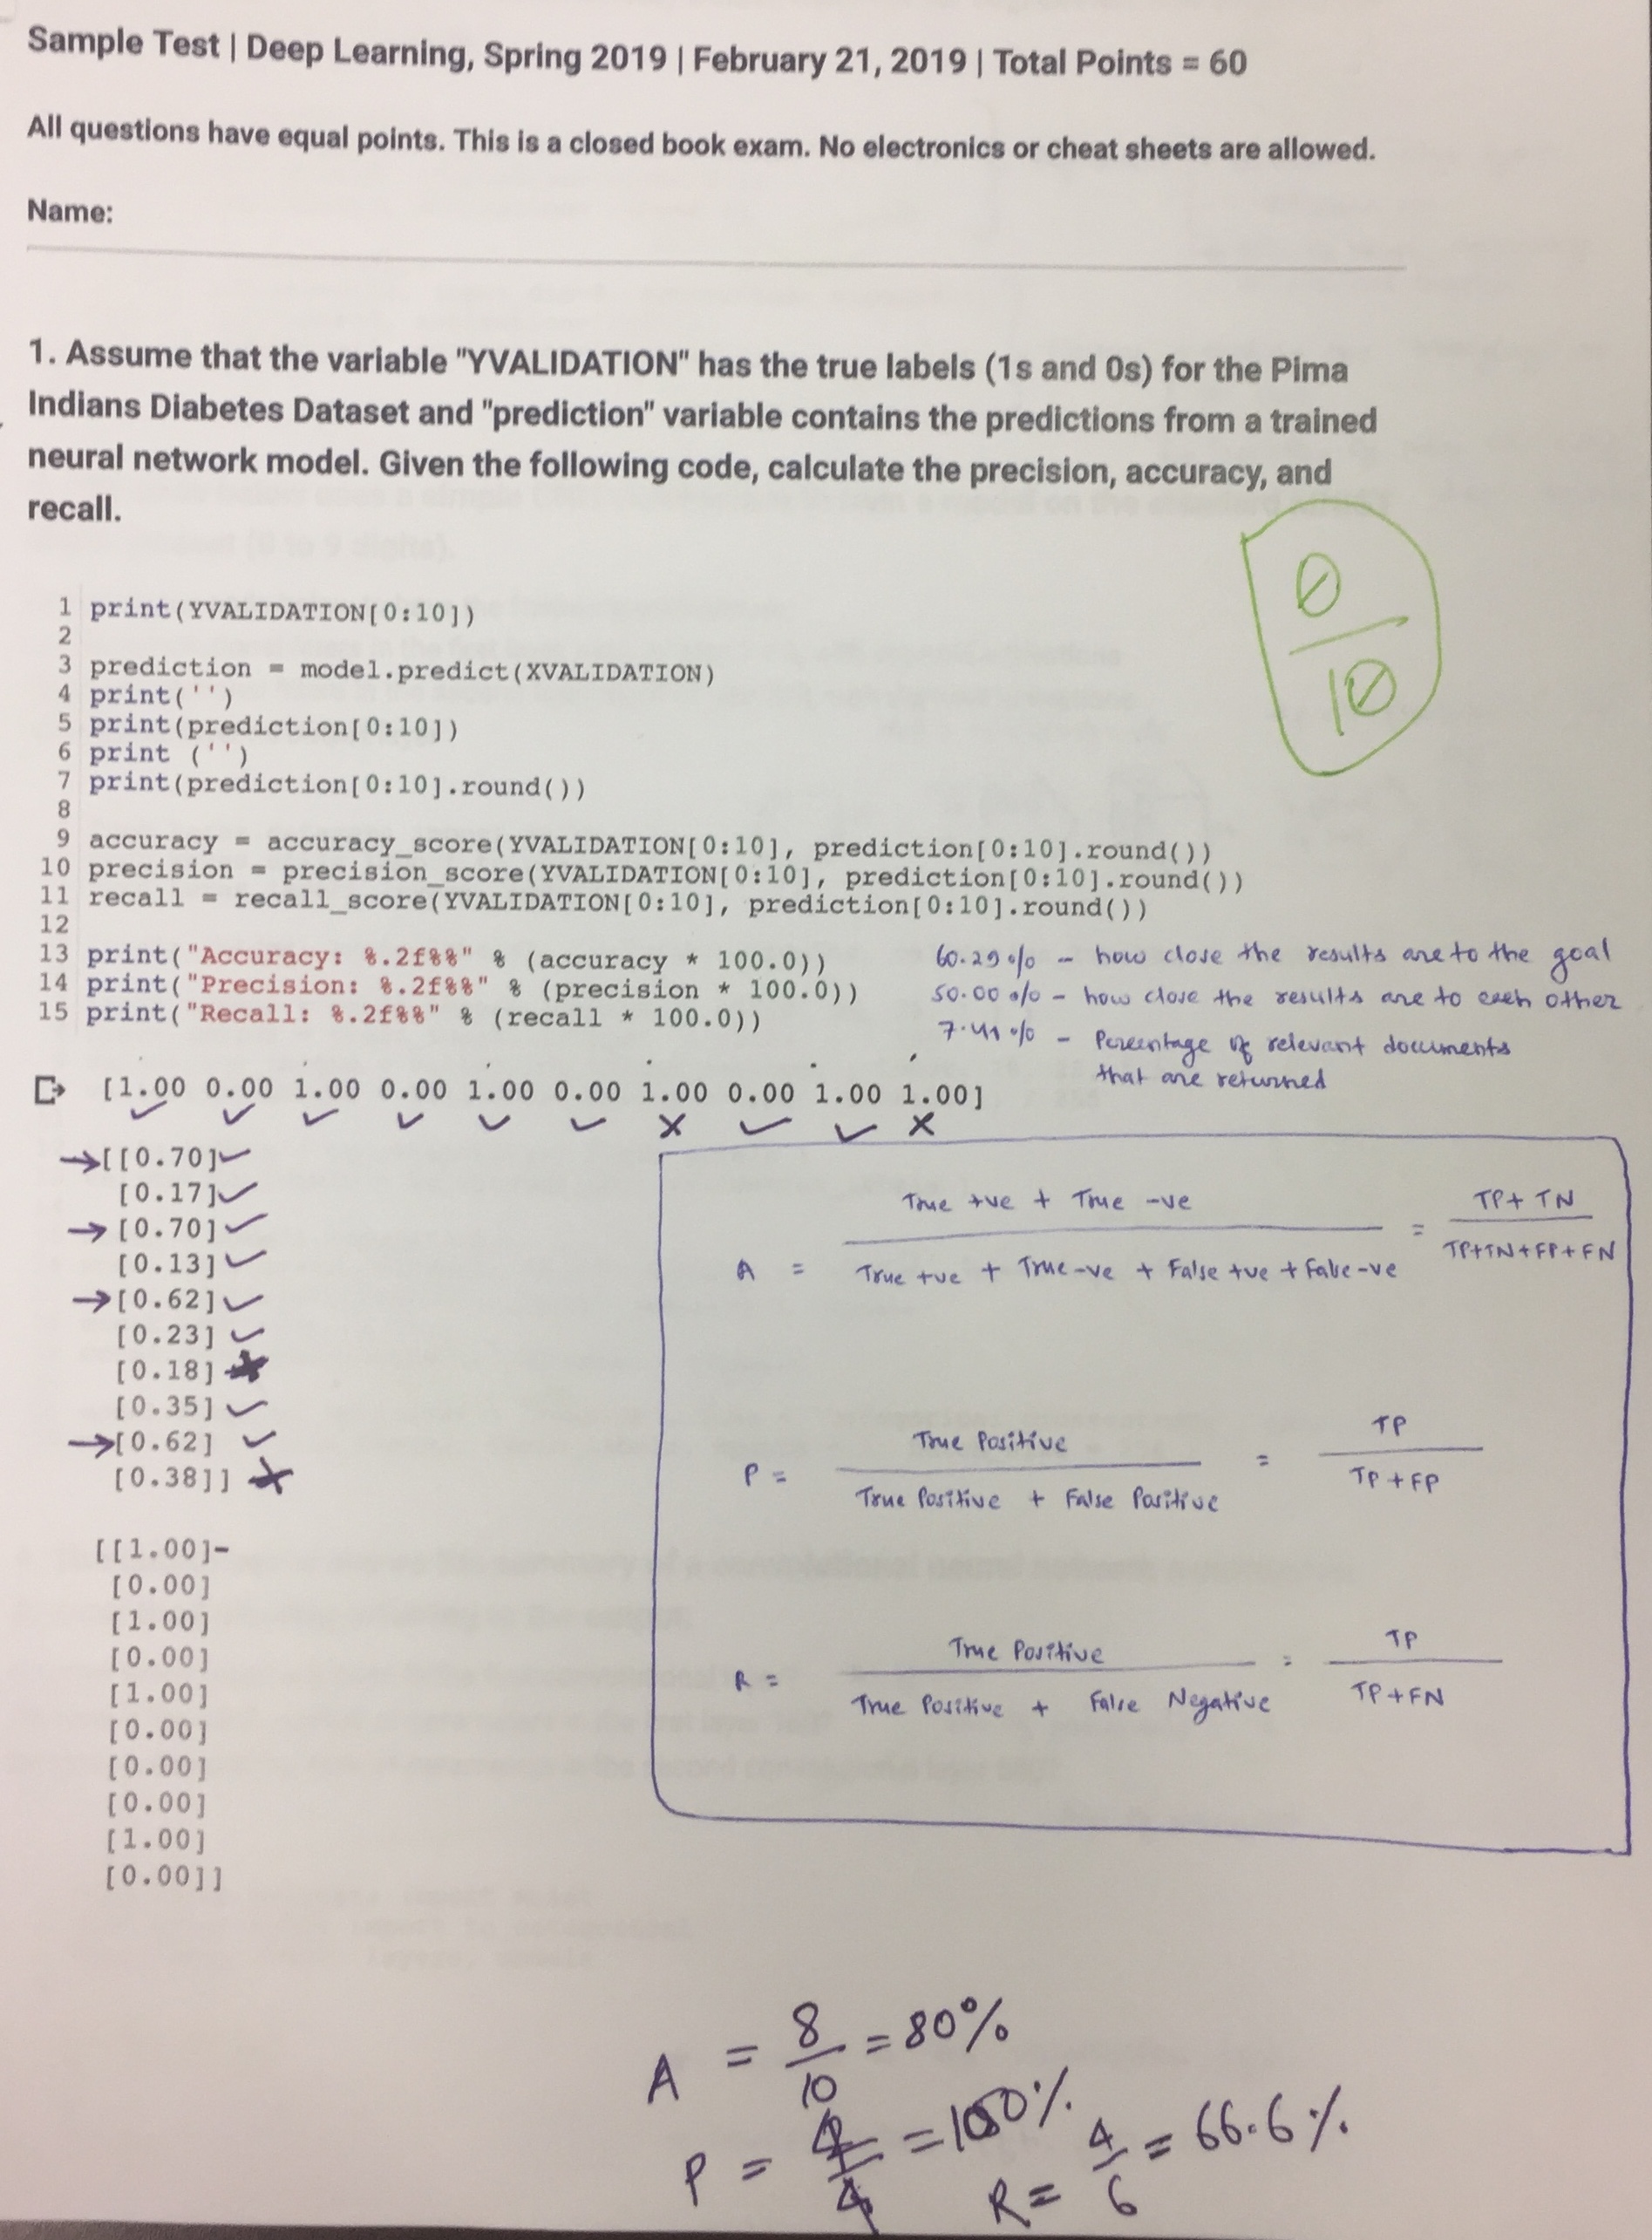 Sample Test | Deep Learning, Spring 2019 | February 21, 2019 | Total Points = 60
All questions have equal points. This is a closed book exam. No electronics or cheat sheets are allowed.
Name:
1. Assume that the variable "YVALIDATION" has the true labels (1s and 0s) for the Pima
Indians Diabetes Dataset and "prediction" variable contains the predictions from a trained
neural network model. Given the following code, calculate the precision, accuracy, and
recall.
0
10
1 print(YVALIDATION[0:10])
2
3 prediction = model.predict(XVALIDATION)
4 print('')
5 print(prediction[0:10])
6 print ('')
7 print(prediction[0:10].round())
8
9 accuracy = accuracy_score(YVALIDATION[0:10], prediction[0:10].round())
10 precision = precision_score(YVALIDATION[0:10], prediction[0:10].round())
11 recall = recall_score(YVALIDATION[0:10], prediction[0:10].round())
12
13 print("Accuracy: %.2f%%" % (accuracy * 100.0)) 60.29% - how close the results are to the goal
14 print("Precision: %.2f%%" % (precision * 100.0)) 50.00% - how close the results are to each other
15 print("Recall: %.2f%%" % (recall * 100.0)) 7.41% - Percentage of relevant documents
that are returned
[1.00 0.00 1.00 0.00 1.00 0.00 1.00 0.00 1.00 1.00]
✓ ✓ ✓ ✓ ✓ ✓ X ✓ ✓ X
→[[0.70]✓
[0.17]✓
→[0.70]✓
[0.13]✓
→[0.62]✓
[0.23]✓
[0.18]X
[0.35]✓
→[0.62]✓
[0.38]]X
[[1.00]-
[0.00]
[1.00]
[0.00]
[1.00]
[0.00]
[0.00]
[0.00]
[1.00]
[0.00]]
True +ve + True -ve TP+ TN
A = =
True +ve + True -ve + False +ve + False -ve TP+TN+FP+FN
True Positive TP
P = =
True Positive + False Positive TP+FP
True Positive TP
R = =
True Positive + False Negative TP+FN
A = 8/10 = 80%
P = 4/4 = 100%
R = 4/6 = 66.6%